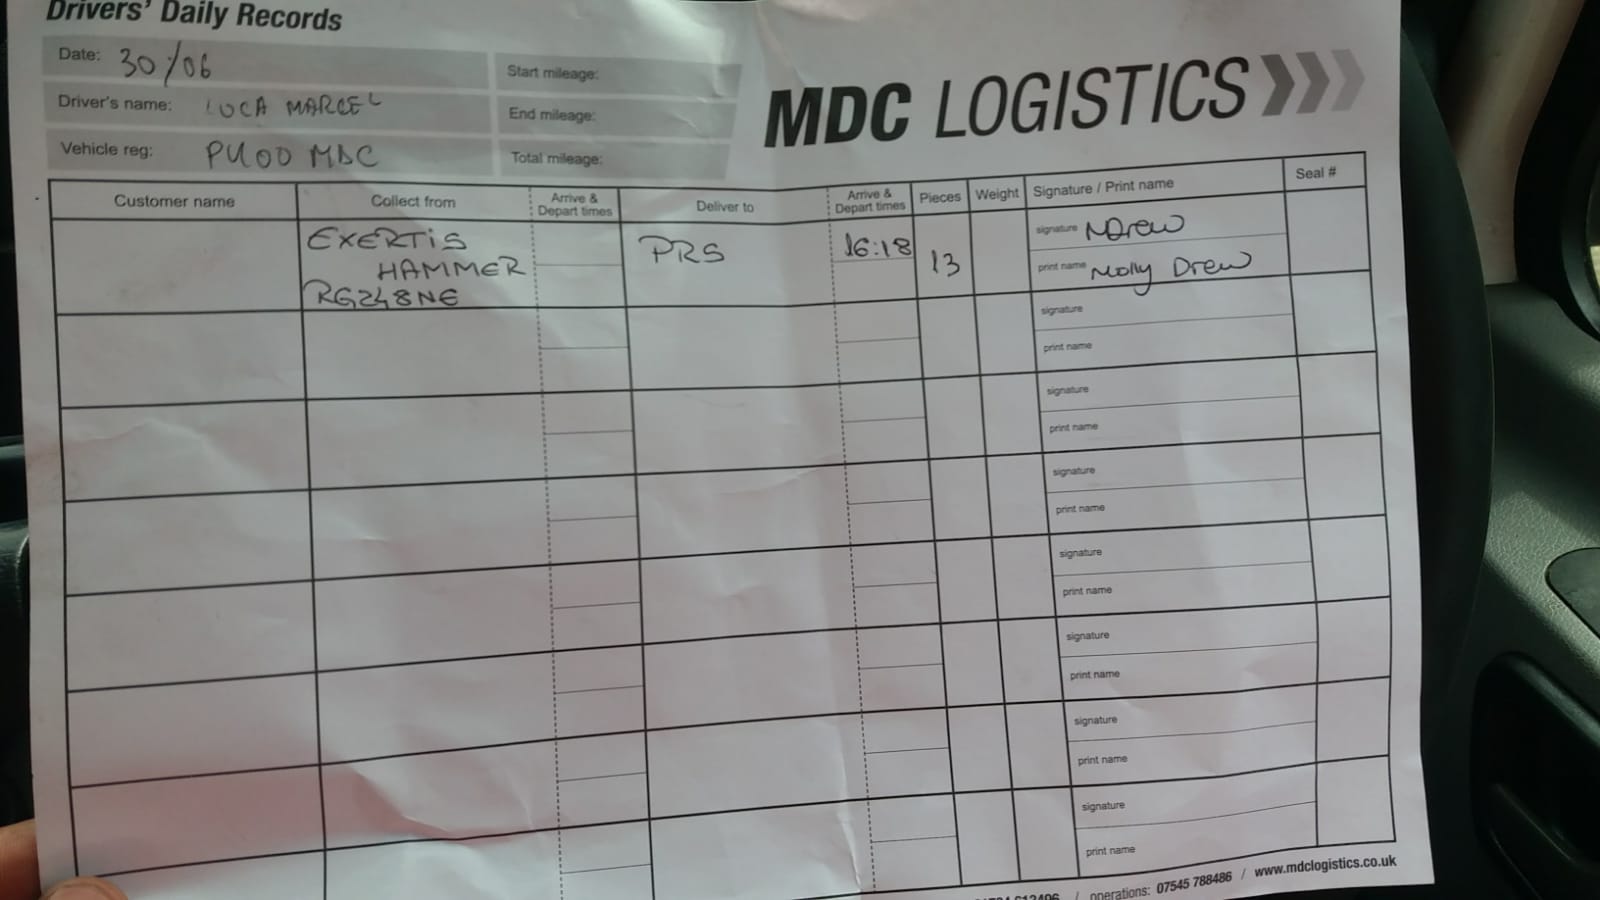 Drivers' Daily Records
Date: 30/06
Driver's name: LUCA MARCEL
Vehicle reg: PU00 MDC
Start mileage:
End mileage:
Total mileage:
MDC LOGISTICS
Customer name
Collect from
Arrive & Depart times
Deliver to
Arrive & Depart times
Pieces
Weight
Signature / Print name
Seal #
EXERTIS
HAMMER
RG248NE
PRS
16:18
13
signature MDrew
print name Molly Drew
signature
print name
signature
print name
signature
print name
signature
print name
signature
print name
signature
print name
signature
print name
/ operations: 07545 788486 / www.mdclogistics.co.uk